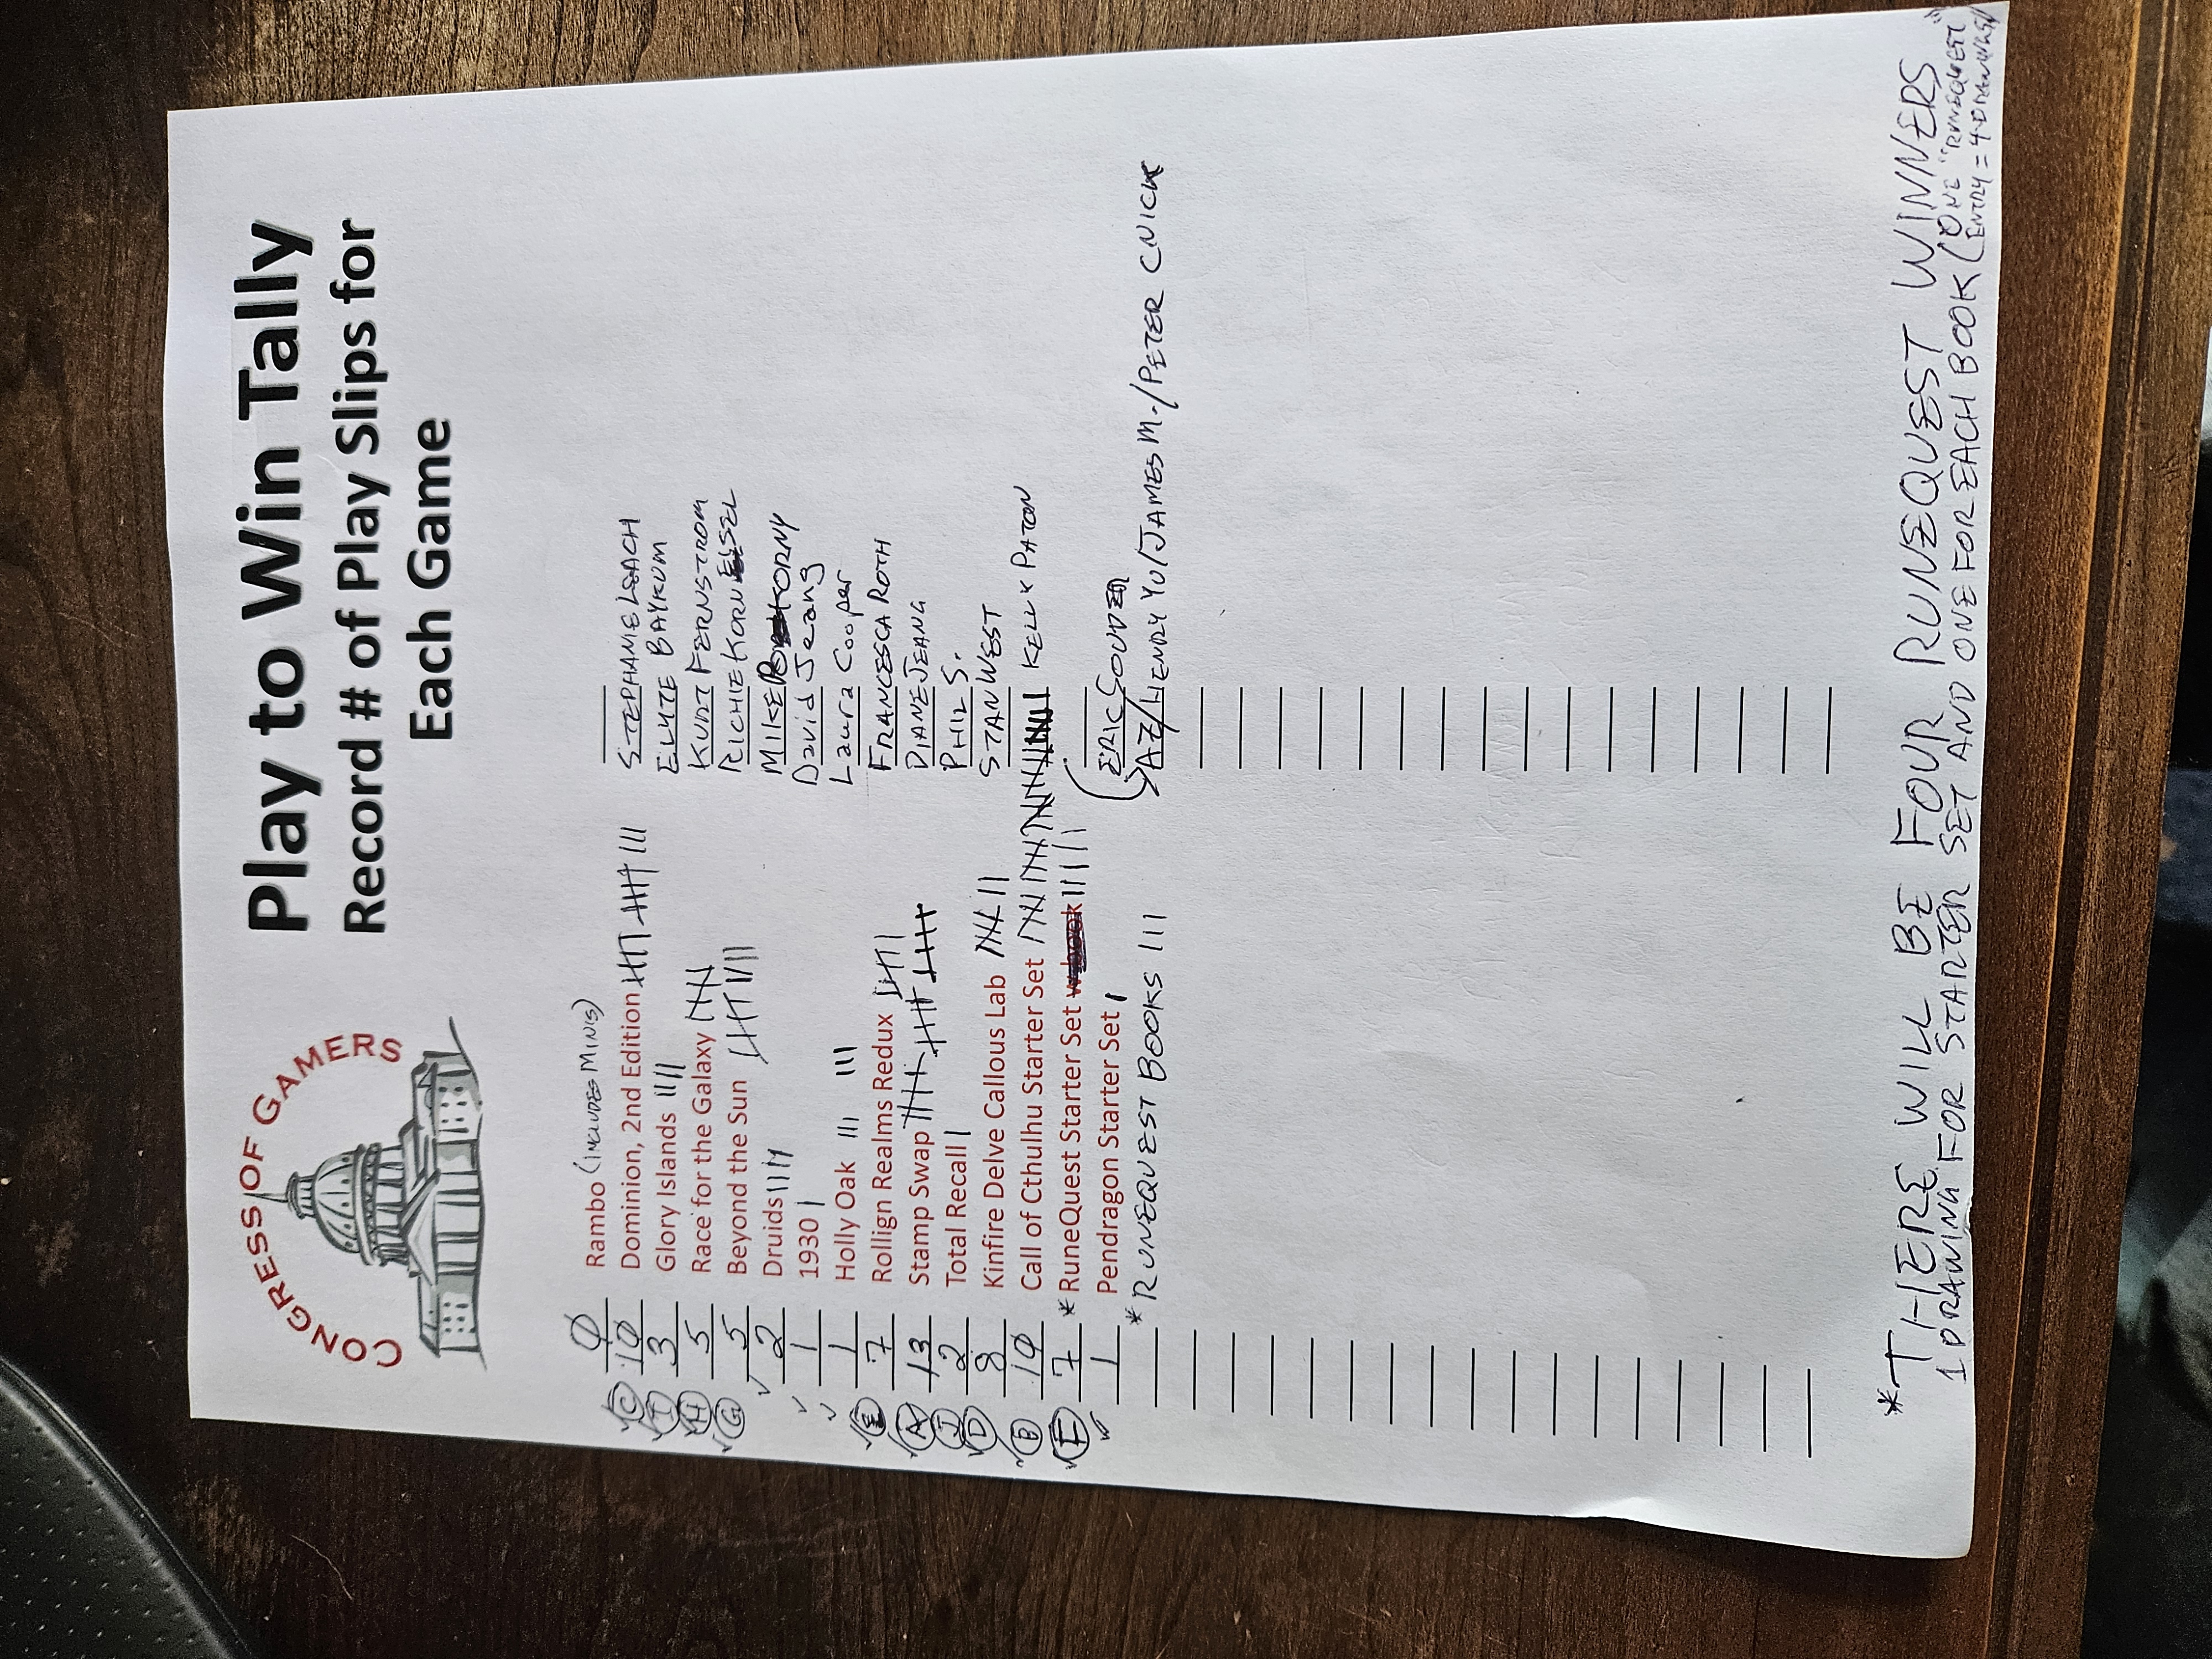 CONGRESS OF GAMERS
Play to Win Tally
Record # of Play Slips for
Each Game
0 Rambo (INCLUDES MINIS)
C 10 Dominion, 2nd Edition STEPHANIE LEACH
I 3 Glory Islands |||| ELYTE BAYKUM
H 5 Race for the Galaxy KURT FERNSTROM
G 5 Beyond the Sun RICHIE KORNELSEL
2 Druids MIKE POKORNY
1 1930 | David Jeang
1 Holly Oak ||| ||| Laura Cooper
E 7 Rollign Realms Redux FRANCESCA ROTH
A 13 Stamp Swap DIANE JEANG
J 2 Total Recall | PHIL S.
D 8 Kinfire Delve Callous Lab STAN WEST
B 10 Call of Cthulhu Starter Set KELLY PATON
F 7 * RuneQuest Starter Set
1 Pendragon Starter Set | ERIC SOUDER
* RUNEQUEST BOOKS ||| AZ/HENRY YU/JAMES M./PETER CNICK
* THERE WILL BE FOUR RUNEQUEST WINNERS
1 DRAWING FOR STARTER SET AND ONE FOR EACH BOOK (ONE "RUNEQUEST"
ENTRY = 4 DRAWINGS)